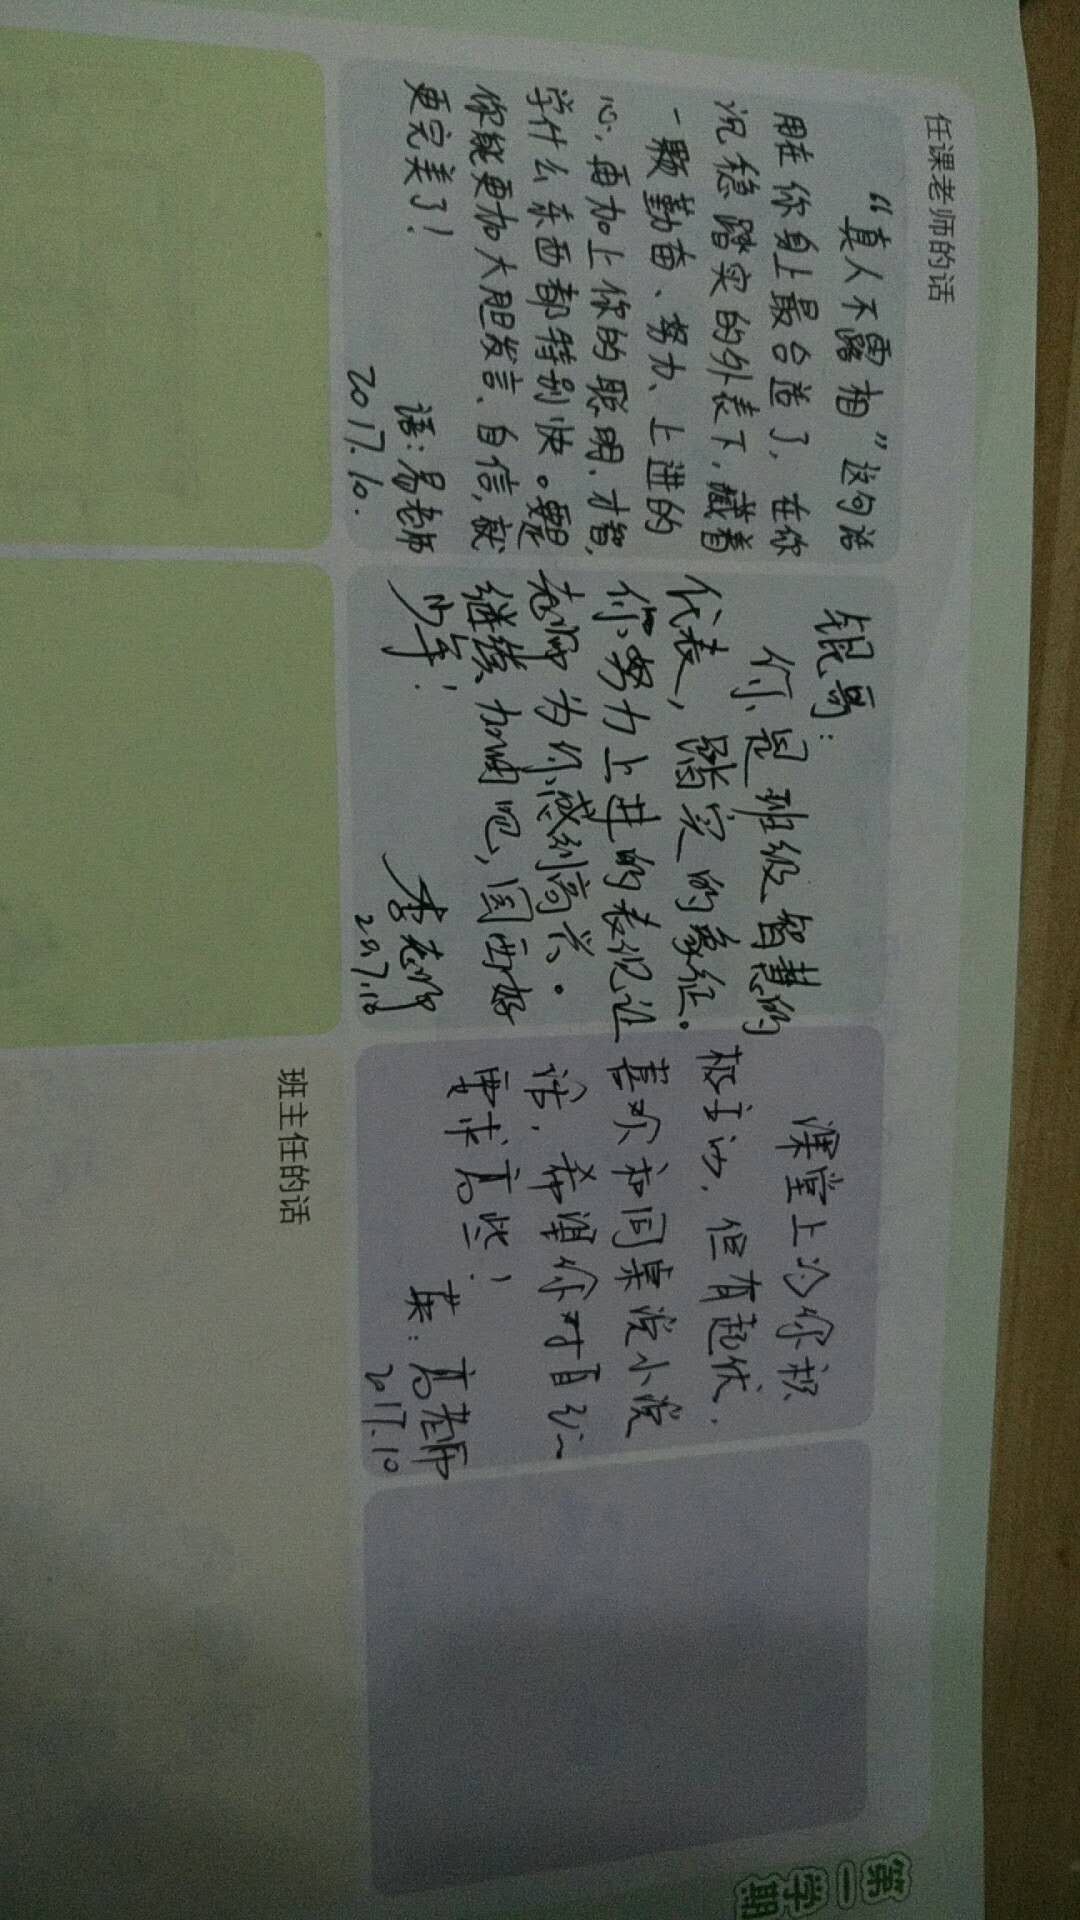 任课老师的话
“真人不露相”这句话
用在你身上最合适了，在你
沉稳踏实的外表下，藏着
一颗勤奋、努力、上进的
心，再加上你的聪明、才智，
学什么东西都特别快。要是
你能更加大胆发言、自信，就
更完美了！
语：易老师
2017.10.
锟哥：
你是班级智慧的
代表，踏实的象征。
你努力上进的表现让
老师为你感到高兴。
继续加油吧，
少年！
李老师
2017.10
课堂上为你积
极主动，但有起伏，
喜欢和同桌说小说
话，希望你对自己
要求高些！
英：高老师
2017.10
班主任的话
第一学期